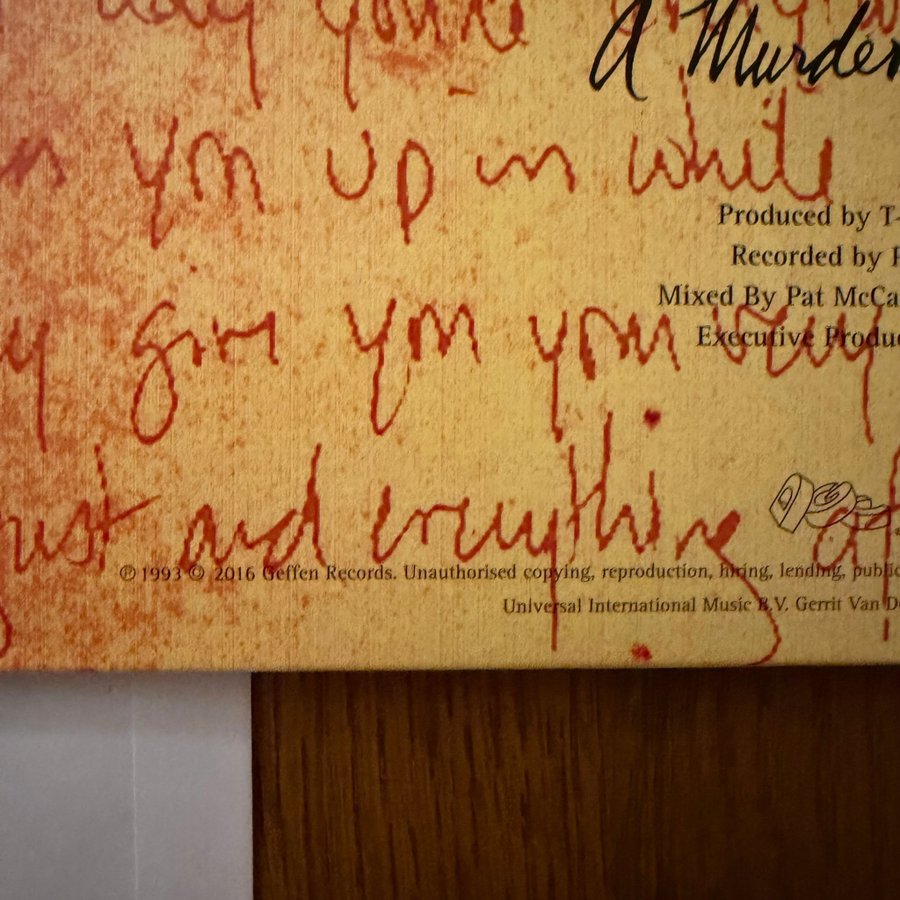 A Murder
you up in white
Produced by T-
Recorded by
Mixed By Pat McCa
give you your
Executive Produc
and everything
℗ 1993 © 2016 Geffen Records. Unauthorised copying, reproduction, hiring, lending, public
Universal International Music B.V. Gerrit Van D